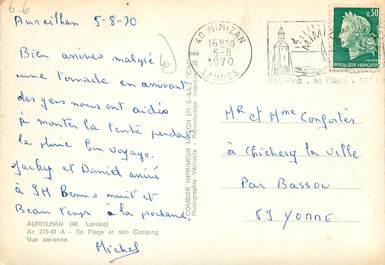 6 6
Aureilhan 5-8-70
Bien arrivés malgré
une tornade en arrivant
des gens nous ont aidés
à monter la tente pendant
la pluie Bon voyage.
Jacky et Daniel arrivé
à 3H Bonne nuit et
Beau temps à la prochaine
Michel
AUREILHAN (40. Landes)
As 213-43 A - Sa Plage et son Camping
Vue aérienne.
COMBIER IMPRIMEUR MACON
Photographie Véritable
40 MIMIZAN
16H30
5-8
1970
LANDES
MIMIZ
sa Plage
0,30
REPUBLIQUE FRANCAISE
Mr et Mme
à Chichery la ville
Par Bassou
89 YONNE